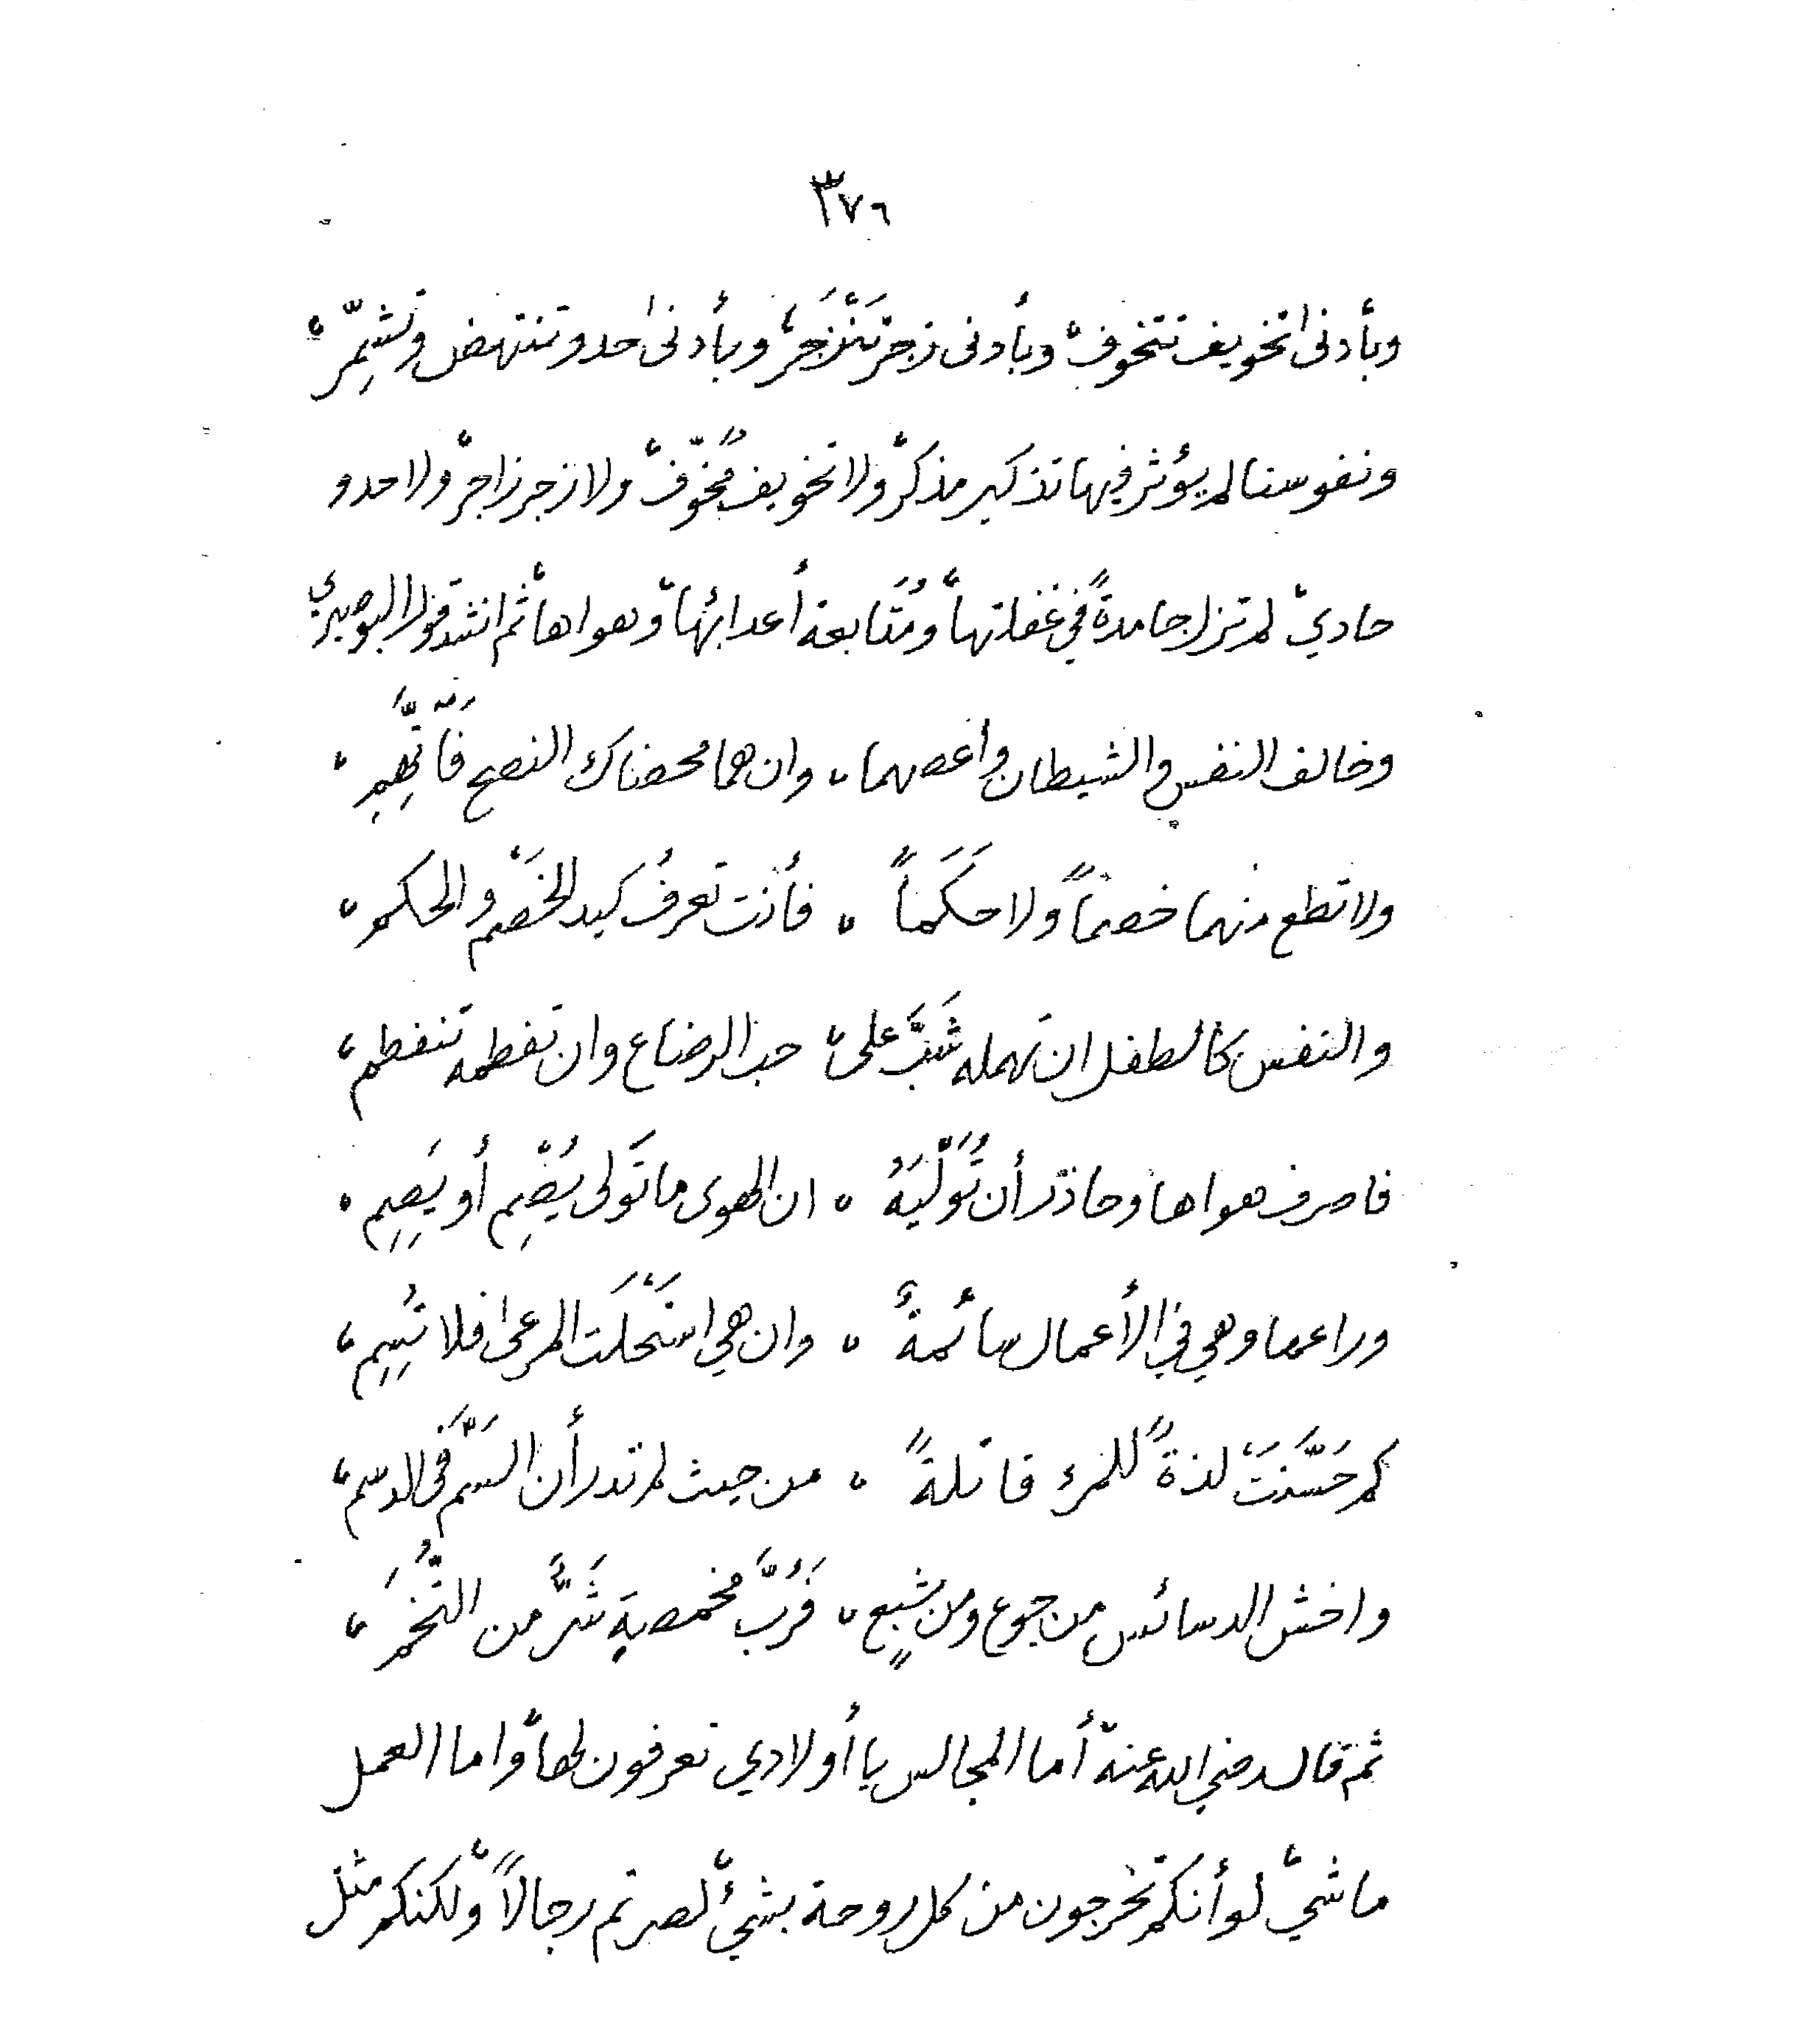 ٣٧٦
وبأدنى تخويف تتخوف، وبأدنى زجر تَنْزَجِرْ، وبأدنى حدو تنتهض وتشمِّر،
ونفوسنا لم يؤثر فيها تذكير مذكر، ولا تخويف مُخوّف، ولا زجر زاجر، ولا حدو
حادي، لم تزل جامدةً في غفلتها، ومُتَابعة أعدائها، وهواها، ثم انشد قول البوصيري
وخالف النفس والشيطان وأعصهما، وان هما محضناك النصح فَاتَّهِمِ،
ولا تطع منهما خصماً ولا حَكَماً ، فأنت تعرفُ كيد الخَصْم والحكم،
والنفس كالطفل ان تهمله شَبَّ على، حب الرضاع وان تفطمه تنفطم،
فاصرف هواها وحاذر أن تُوَلّيَهُ ، ان الهوى ما تَولى يُصْمِ أو يَصِمِ،
وراعها وهي في الأعمال سائمةٌ ، وان هي استَحْلَت المرعى فلا تُسِمِ،
كم حَسَّنَتْ لذةً للمرء قاتلةً ، من حيث لم تدر أن السَّمَّ في الدسم،
واخش الدسائس من جوع ومن شبعٍ، فَرُبَّ مخمصةٍ شَرٌّ من التُّخَمِ،
ثم قال رضي الله عنه، أما المجالس يا أولادي تعرفون لها، واما العمل
ما شيْ، لو أنكم تخرجون من كل روحة بشيْء، لصرتم رجالاً، ولكنكم مثل